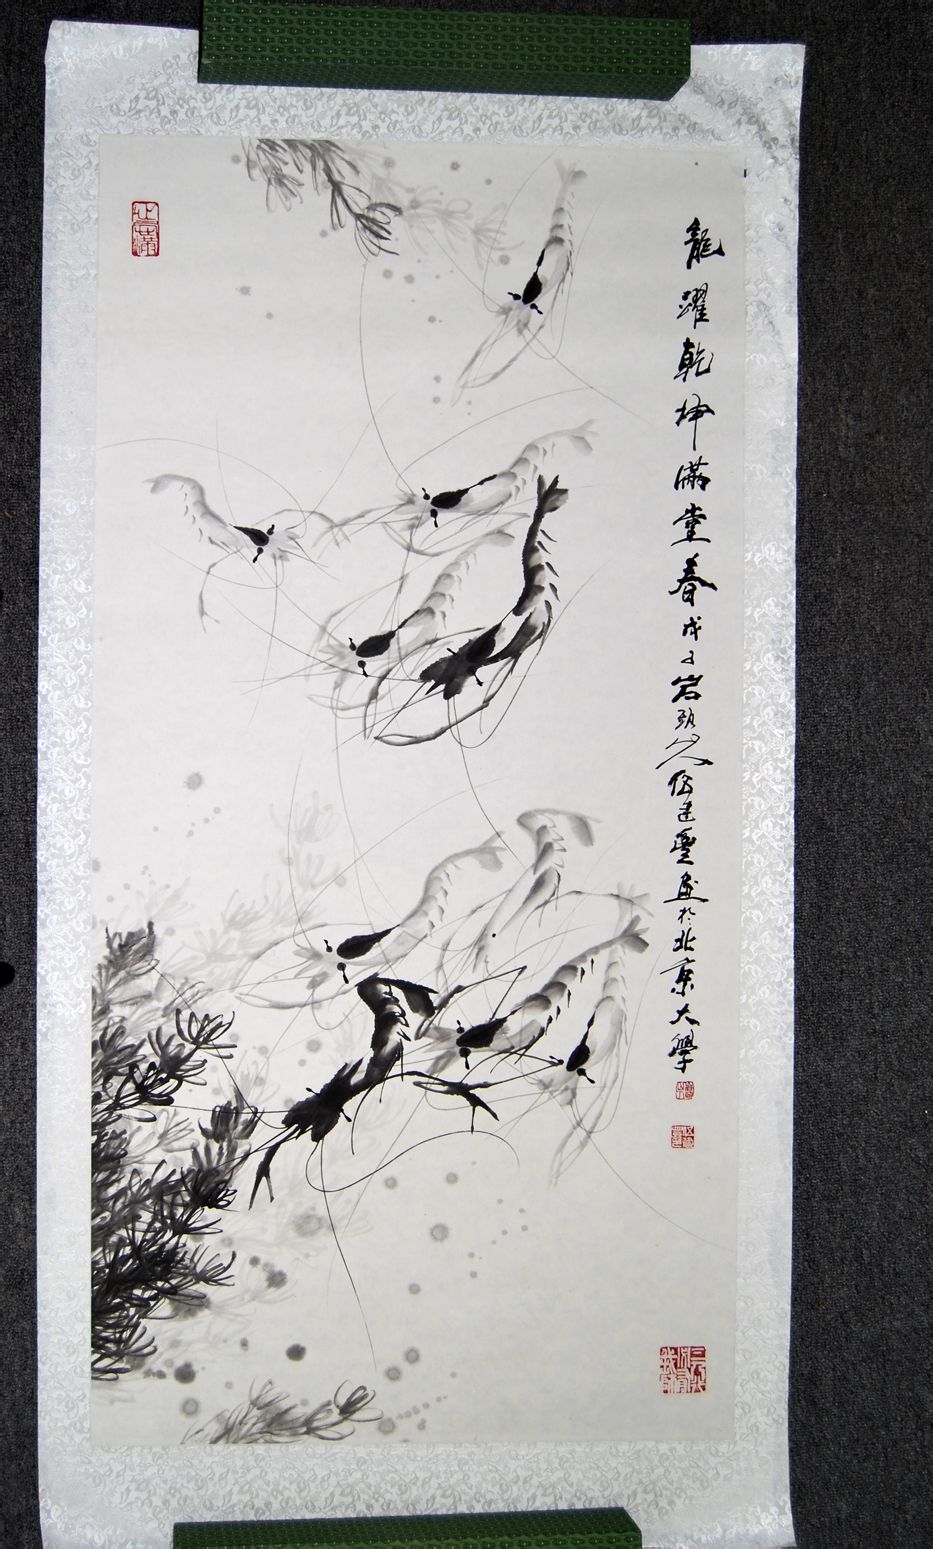 龍躍乾坤滿堂春戊子岩頭山人建畫於北京大學